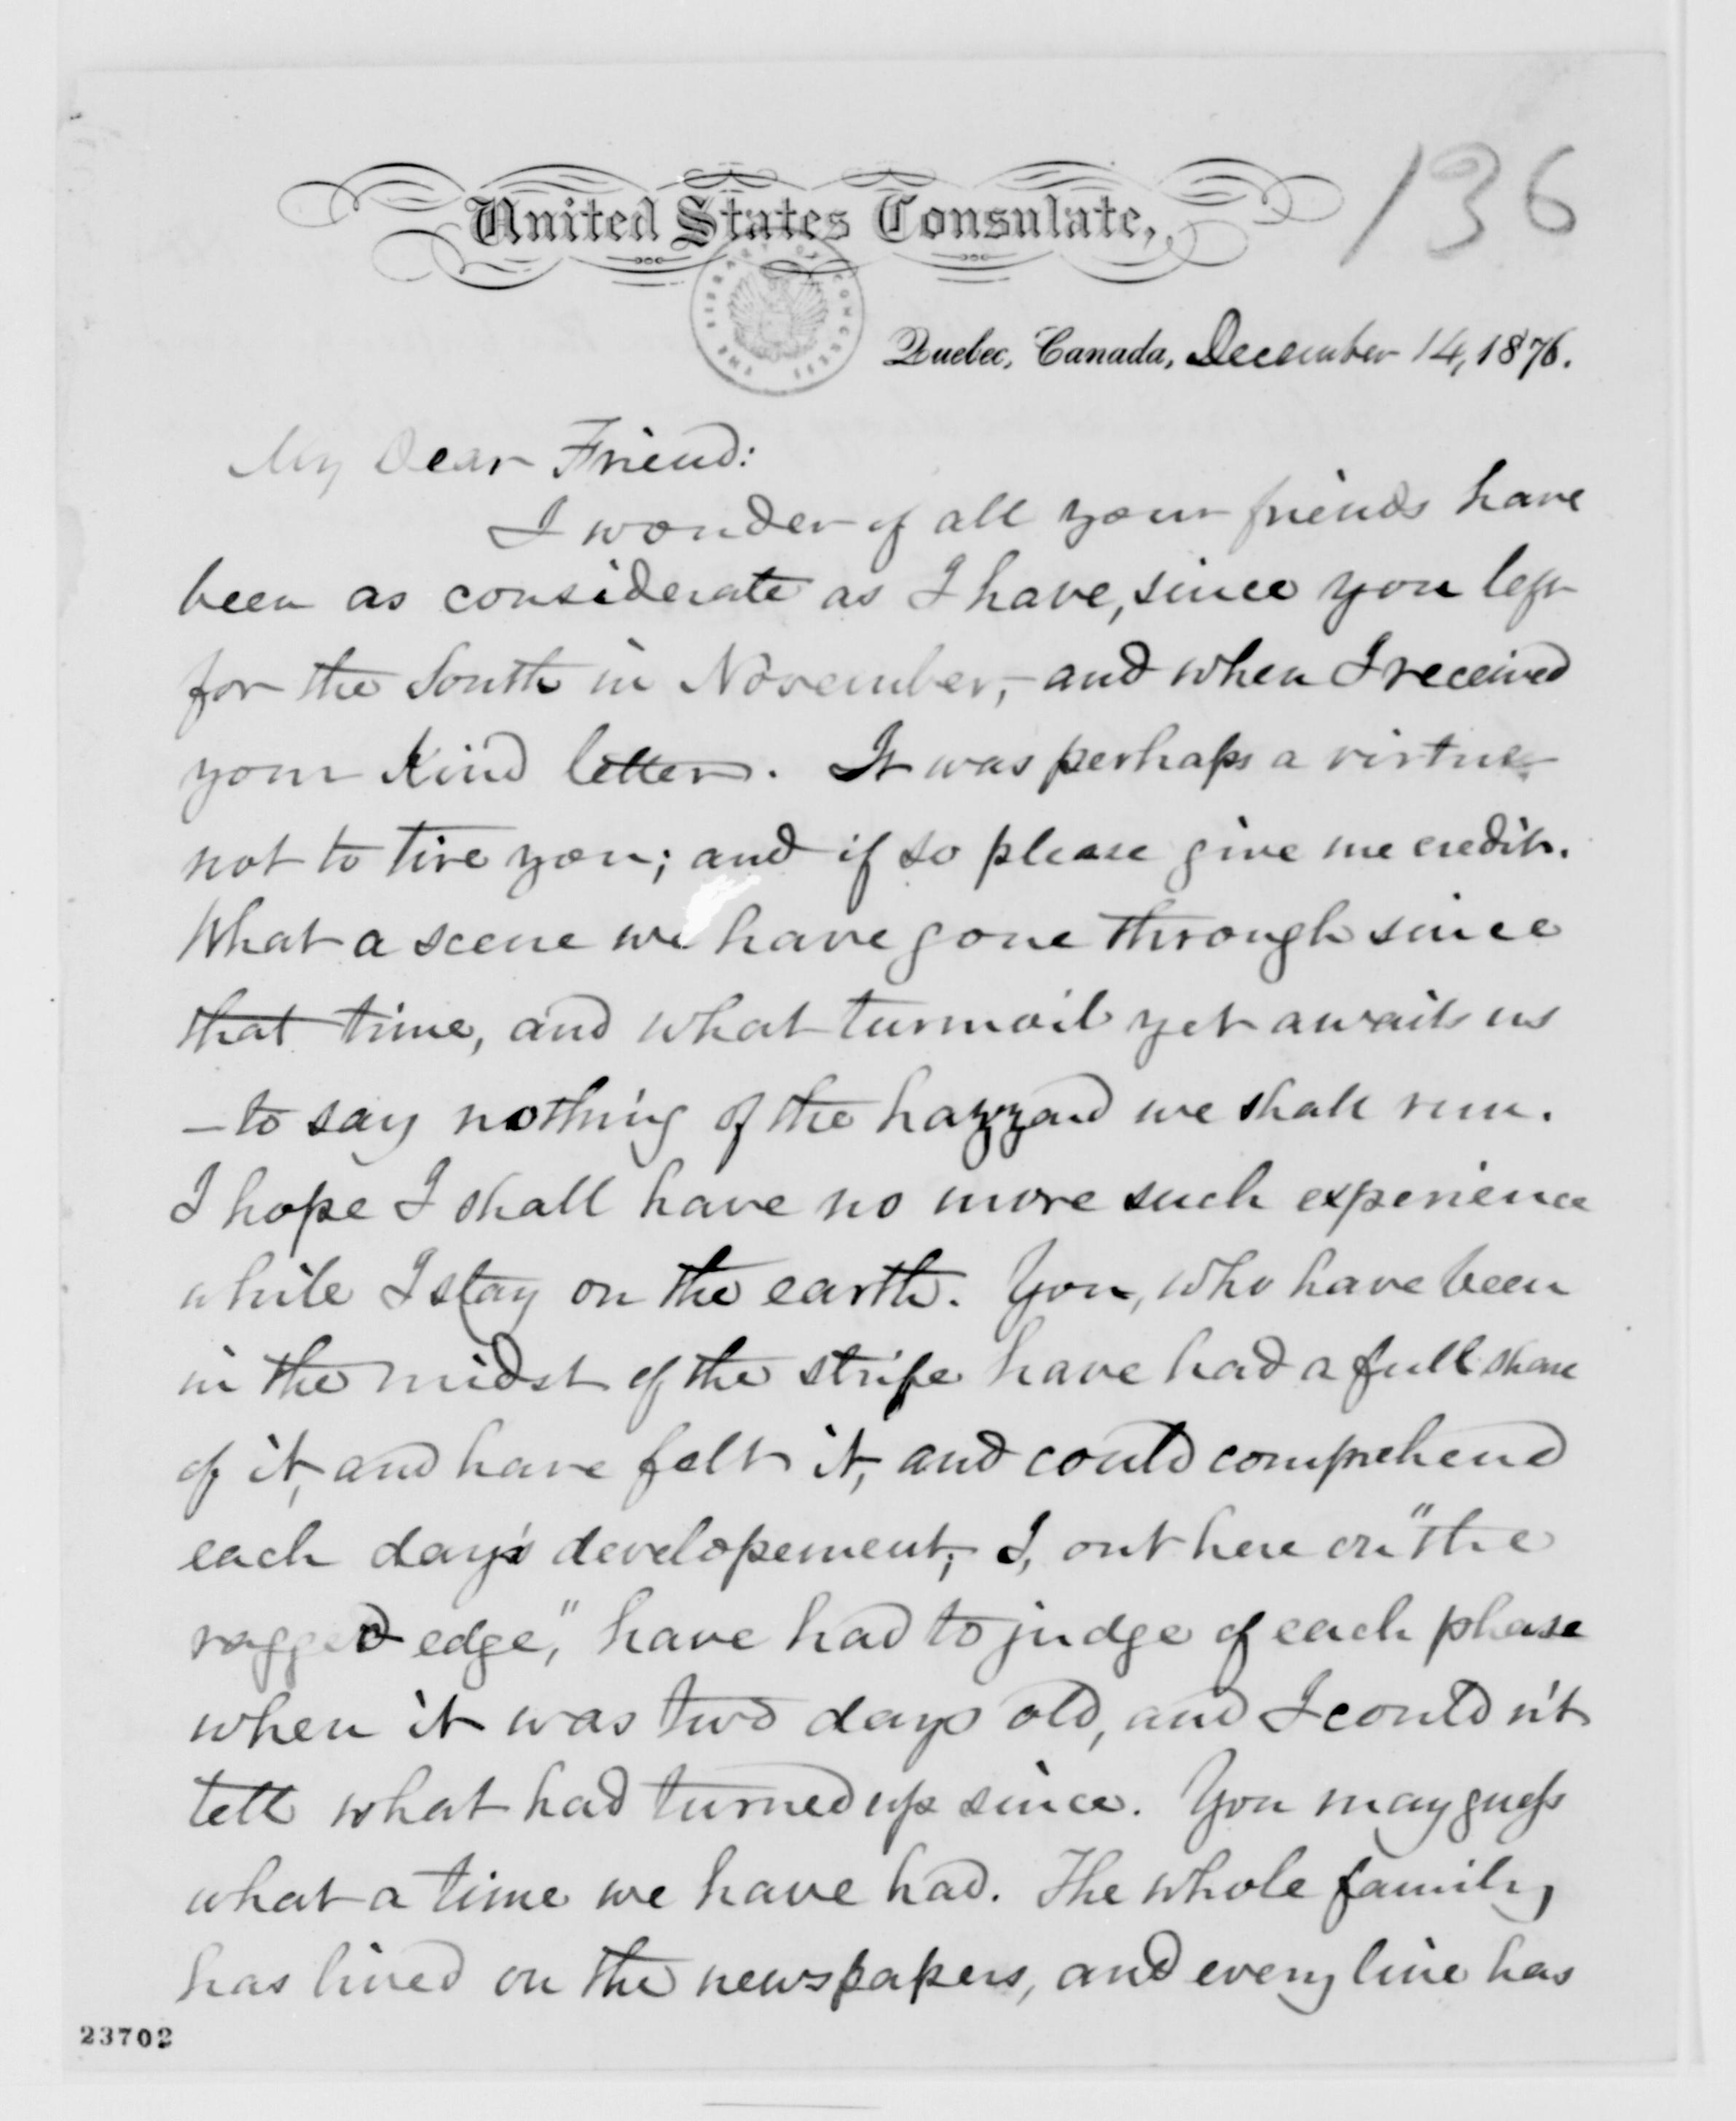 136
United States Consulate,
THE LIBRARY OF CONGRESS
Quebec, Canada, December 14, 1876.
My Dear Friend:
I wonder if all your friends have
been as considerate as I have, since you left
for the South in November, and when I received
your kind letter. It was perhaps a virtue
not to tire you; and if so please give me credit.
What a scene we have gone through since
that time, and what turmoil yet awaits us
—to say nothing of the hazzard we shall run.
I hope I shall have no more such experience
while I stay on the earth. You, who have been
in the midst of the strife have had a full share
of it, and have felt it, and could comprehend
each day's developement; I, out here on "the
ragged edge," have had to judge of each phase
when it was two days old, and I couldn't
tell what had turned up since. You may guess
what a time we have had. The whole family
has lived on the newspapers, and every line has
23702